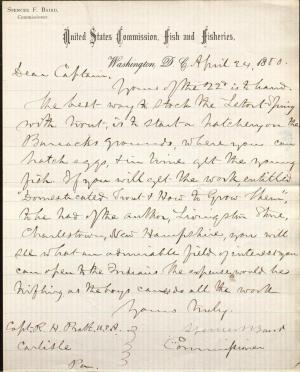 SPENCER F. BAIRD,
COMMISSIONER.
United States Commission, Fish and Fisheries.
Washington, D C, April 24, 1880.
Dear Captain,
Yours of the 22d is to hand.
The best way to stock the Letort Spring
with trout, is to start a hatchery on the
Barracks grounds, where you can
hatch eggs, & in time get the young
fish. If you will get the work, entitled
"Domesticated Trout & How to Grow Them",
to be had of the author, Livingston Stone,
Charlestown, New Hampshire, you will
see what an admirable field of interest you
can open to the Indians the expense would be
trifling as the boys can do all the work
Yours truly,
Spencer F Baird
Capt. R. H. Pratt U.S.A.
Commissioner
Carlisle
Pen.